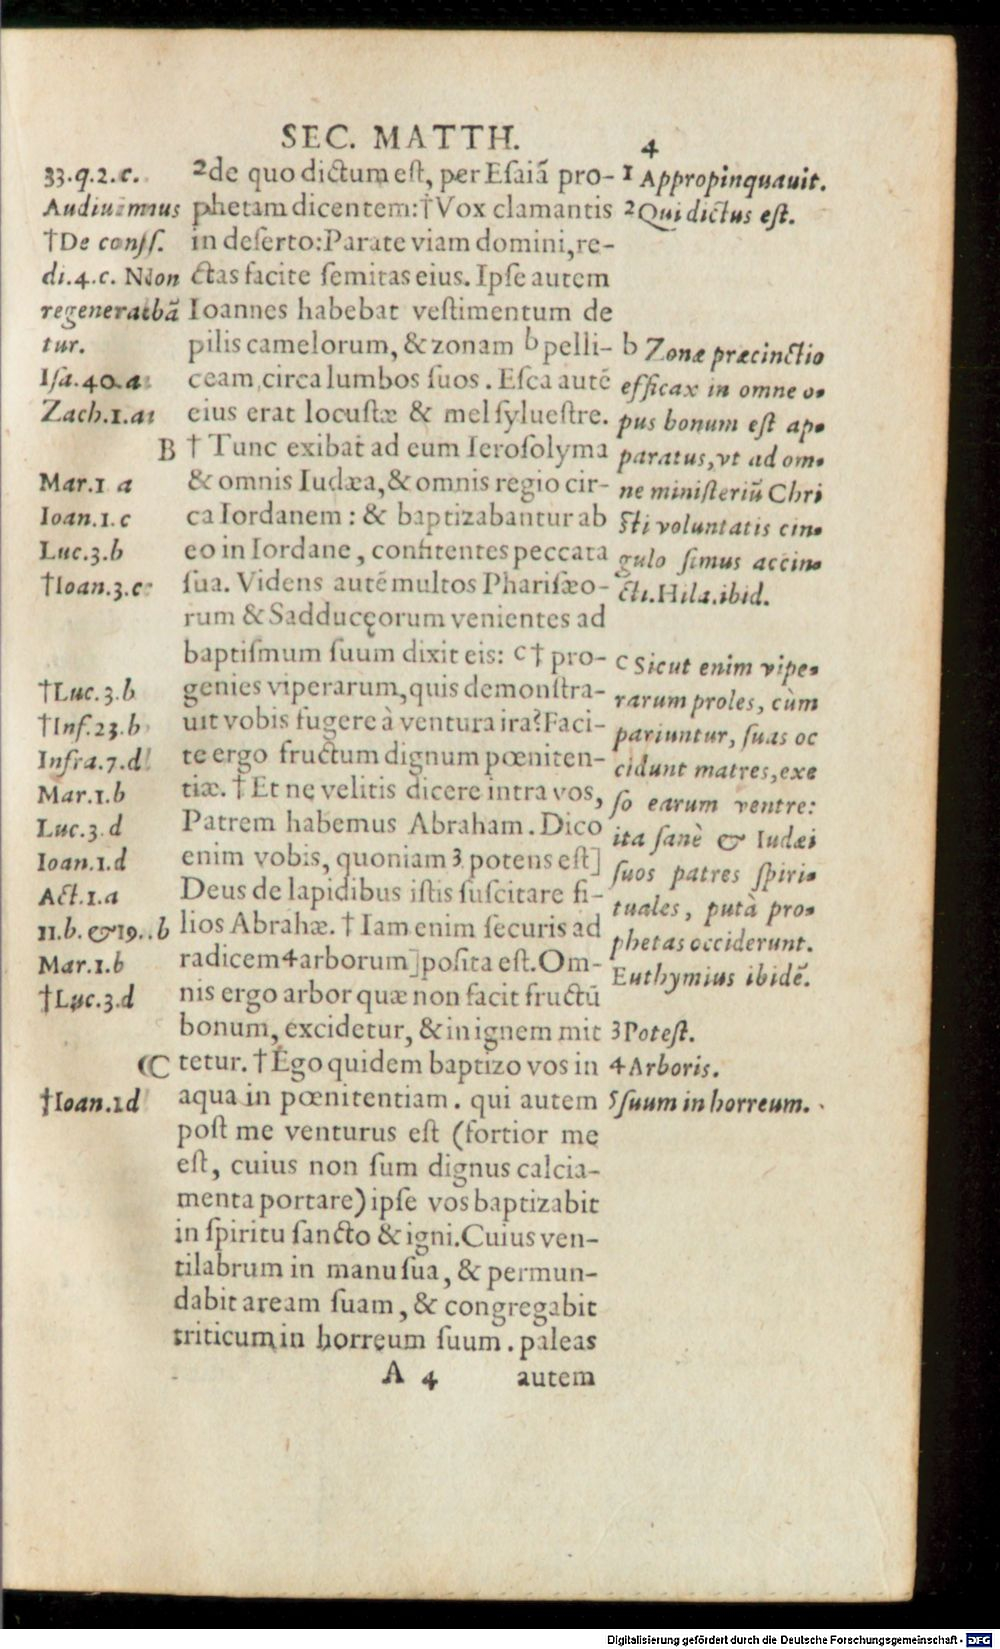 SEC. MATTH.
4
33.q.2.c.
Audiuimus
†De conſſ.
di.4.c. Non
regenerabã
tur.
Iſa.40.a
Zach.1.a
B
Mar.1 a
Ioan.1.c
Luc.3.b
†Ioan.3.c
†Luc.3.b
†Inf.23.b
Infra.7.d
Mar.1.b
Luc.3.d
Ioan.1.d
Act.1.a
11.b.&19..b
Mar.1.b
†Luc.3.d
C
†Ioan.1d
2de quo dictum eſt, per Eſaiã pro-
phetam dicentem:†Vox clamantis
in deſerto:Parate viam domini,re-
ctas facite ſemitas eius. Ipſe autem
Ioannes habebat veſtimentum de
pilis camelorum, & zonam b pelli-
ceam circa lumbos ſuos. Eſca autẽ
eius erat locuſtæ & mel ſylueſtre.
† Tunc exibat ad eum Ieroſolyma
& omnis Iudæa, & omnis regio cir-
ca Iordanem : & baptizabantur ab
eo in Iordane, confitentes peccata
ſua. Videns autẽ multos Phariſæo-
rum & Sadducęorum venientes ad
baptiſmum ſuum dixit eis: c† pro-
genies viperarum,quis demonſtra-
uit vobis fugere à ventura ira?Faci-
te ergo fructum dignum pœniten-
tiæ. † Et ne velitis dicere intra vos,
Patrem habemus Abraham. Dico
enim vobis, quoniam 3 potens eſt]
Deus de lapidibus iſtis ſuſcitare fi-
lios Abrahæ. † Iam enim ſecuris ad
radicem 4 arborum] poſita eſt. Om-
nis ergo arbor quæ non facit fructũ
bonum, excidetur, & in ignem mit
tetur. † Ego quidem baptizo vos in
aqua in pœnitentiam. qui autem
poſt me venturus eſt (fortior me
eſt, cuius non ſum dignus calcia-
menta portare) ipſe vos baptizabit
in ſpiritu ſancto & igni. Cuius ven-
tilabrum in manu ſua, & permun-
dabit aream ſuam, & congregabit
triticum in horreum ſuum. paleas
A 4 autem
1 Appropinquauit.
2 Qui dictus eſt.
b Zonæ præcinctio
efficax in omne o-
pus bonum eſt ap-
paratus,vt ad om-
ne miniſteriũ Chri
ſti voluntatis cin-
gulo ſimus accin-
cti.Hila.ibid.
c Sicut enim vipe-
rarum proles, cùm
pariuntur, ſuas oc
cidunt matres,exe
ſo earum ventre:
ita ſanè & Iudæi
ſuos patres ſpiri-
tuales, putà pro-
phetas occiderunt.
Euthymius ibidẽ.
3 Poteſt.
4 Arboris.
5 ſuum in horreum.
Digitalisierung gefördert durch die Deutsche Forschungsgemeinschaft - DFG